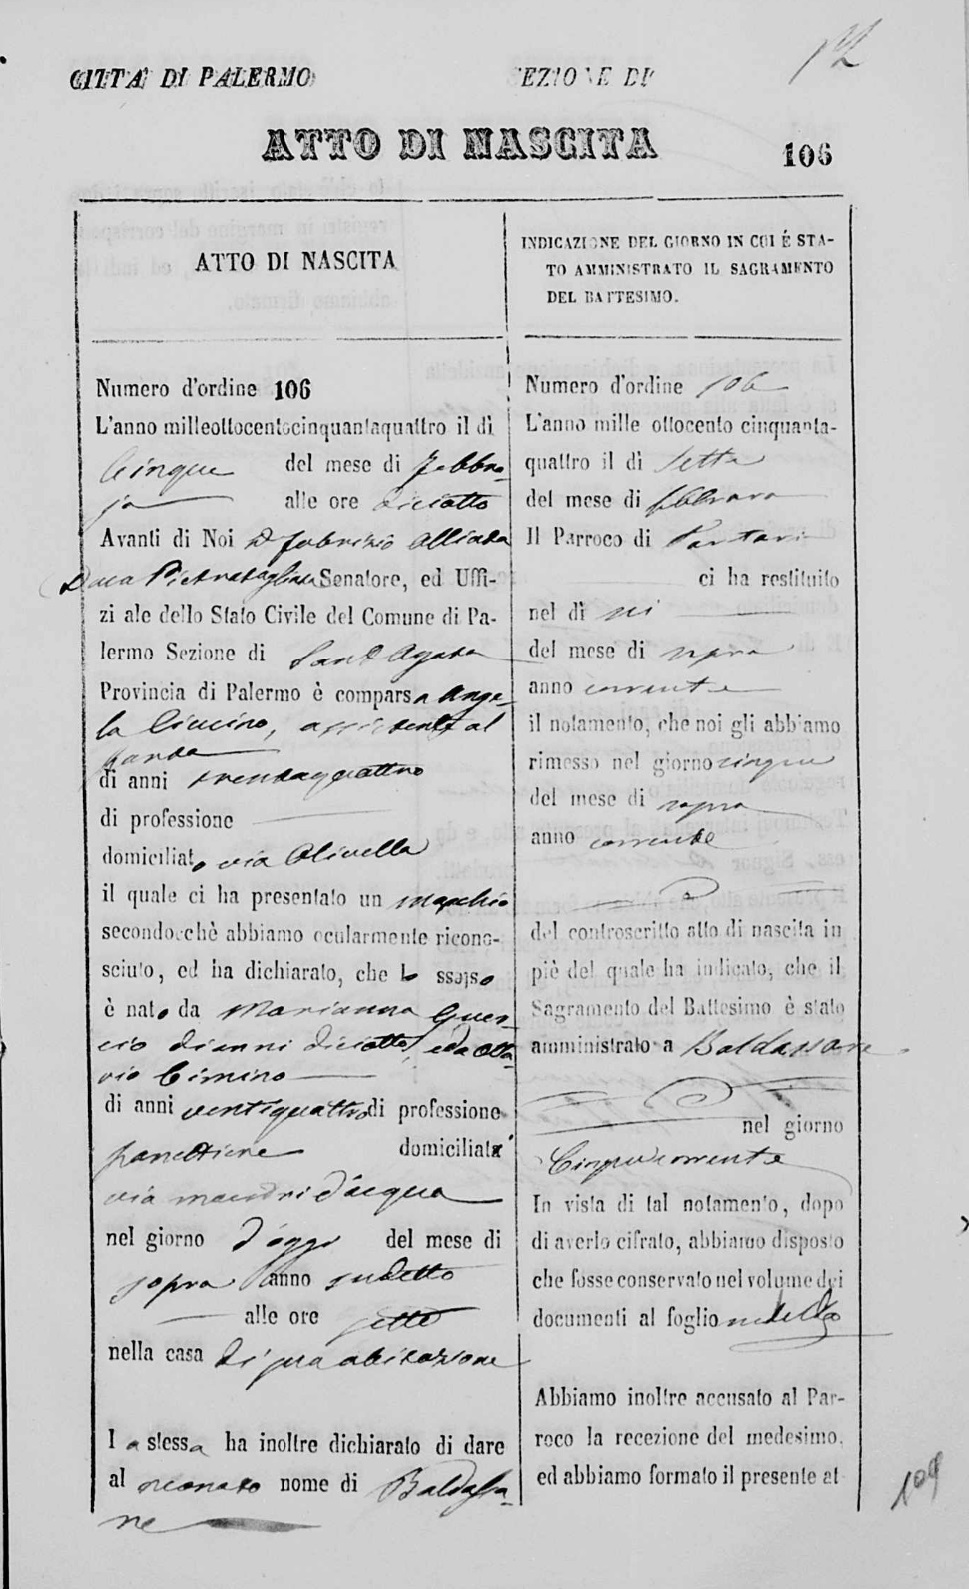 12
CITTA' DI PALERMO
EZIONE DI
ATTO DI NASCITA
106
ATTO DI NASCITA
Numero d'ordine 106
L'anno milleottocentocinquantaquattro il di
Cinque del mese di Febbra-
jo alle ore diciotto
Avanti di Noi D Fabrizio Alliata
Duca Pietratagliata Senatore, ed Uffi-
zi ale dello Stato Civile del Comune di Pa-
lermo Sezione di Sant'Agata
Provincia di Palermo è comparsa Ange-
la Cimino, assistente al
parto
di anni trentaquattro
di professione
domiciliato via Olivella
il quale ci ha presentato un maschio
secondocchè abbiamo ocularmente ricono-
sciuto, ed ha dichiarato, che lo stesso
è nato da Marianna Guer-
cio di anni diciotto, e da Otta-
vio Cimino
di anni ventiquattro di professione
panettiere domiciliati
via d'acqua
nel giorno d'oggi del mese di
sopra anno sudetto
alle ore sette
nella casa di sua abitazione
La stessa ha inoltre dichiarato di dare
al neonato nome di Baldassa-
re
INDICAZIONE DEL GIORNO IN CUI É STA-
TO AMMINISTRATO IL SAGRAMENTO
DEL BATTESIMO.
Numero d'ordine 106
L'anno mille ottocento cinquanta-
quattro il di sette
del mese di febbraro
Il Parroco di
ci ha restituito
nel dì
del mese di sopra
anno corrente
il notamento, che noi gli abbiamo
rimesso nel giorno cinque
del mese di sopra
anno corrente
del controscritto atto di nascita in
piè del quale ha indicato, che il
Sagramento del Battesimo è stato
amministrato a Baldassare
nel giorno
Cinque corrente
In vista di tal notamento, dopo
di averlo cifrato, abbiamo disposto
che fosse conservato nel volume dei
documenti al foglio
Abbiamo inoltre accusato al Par-
roco la recezione del medesimo,
ed abbiamo formato il presente at
109